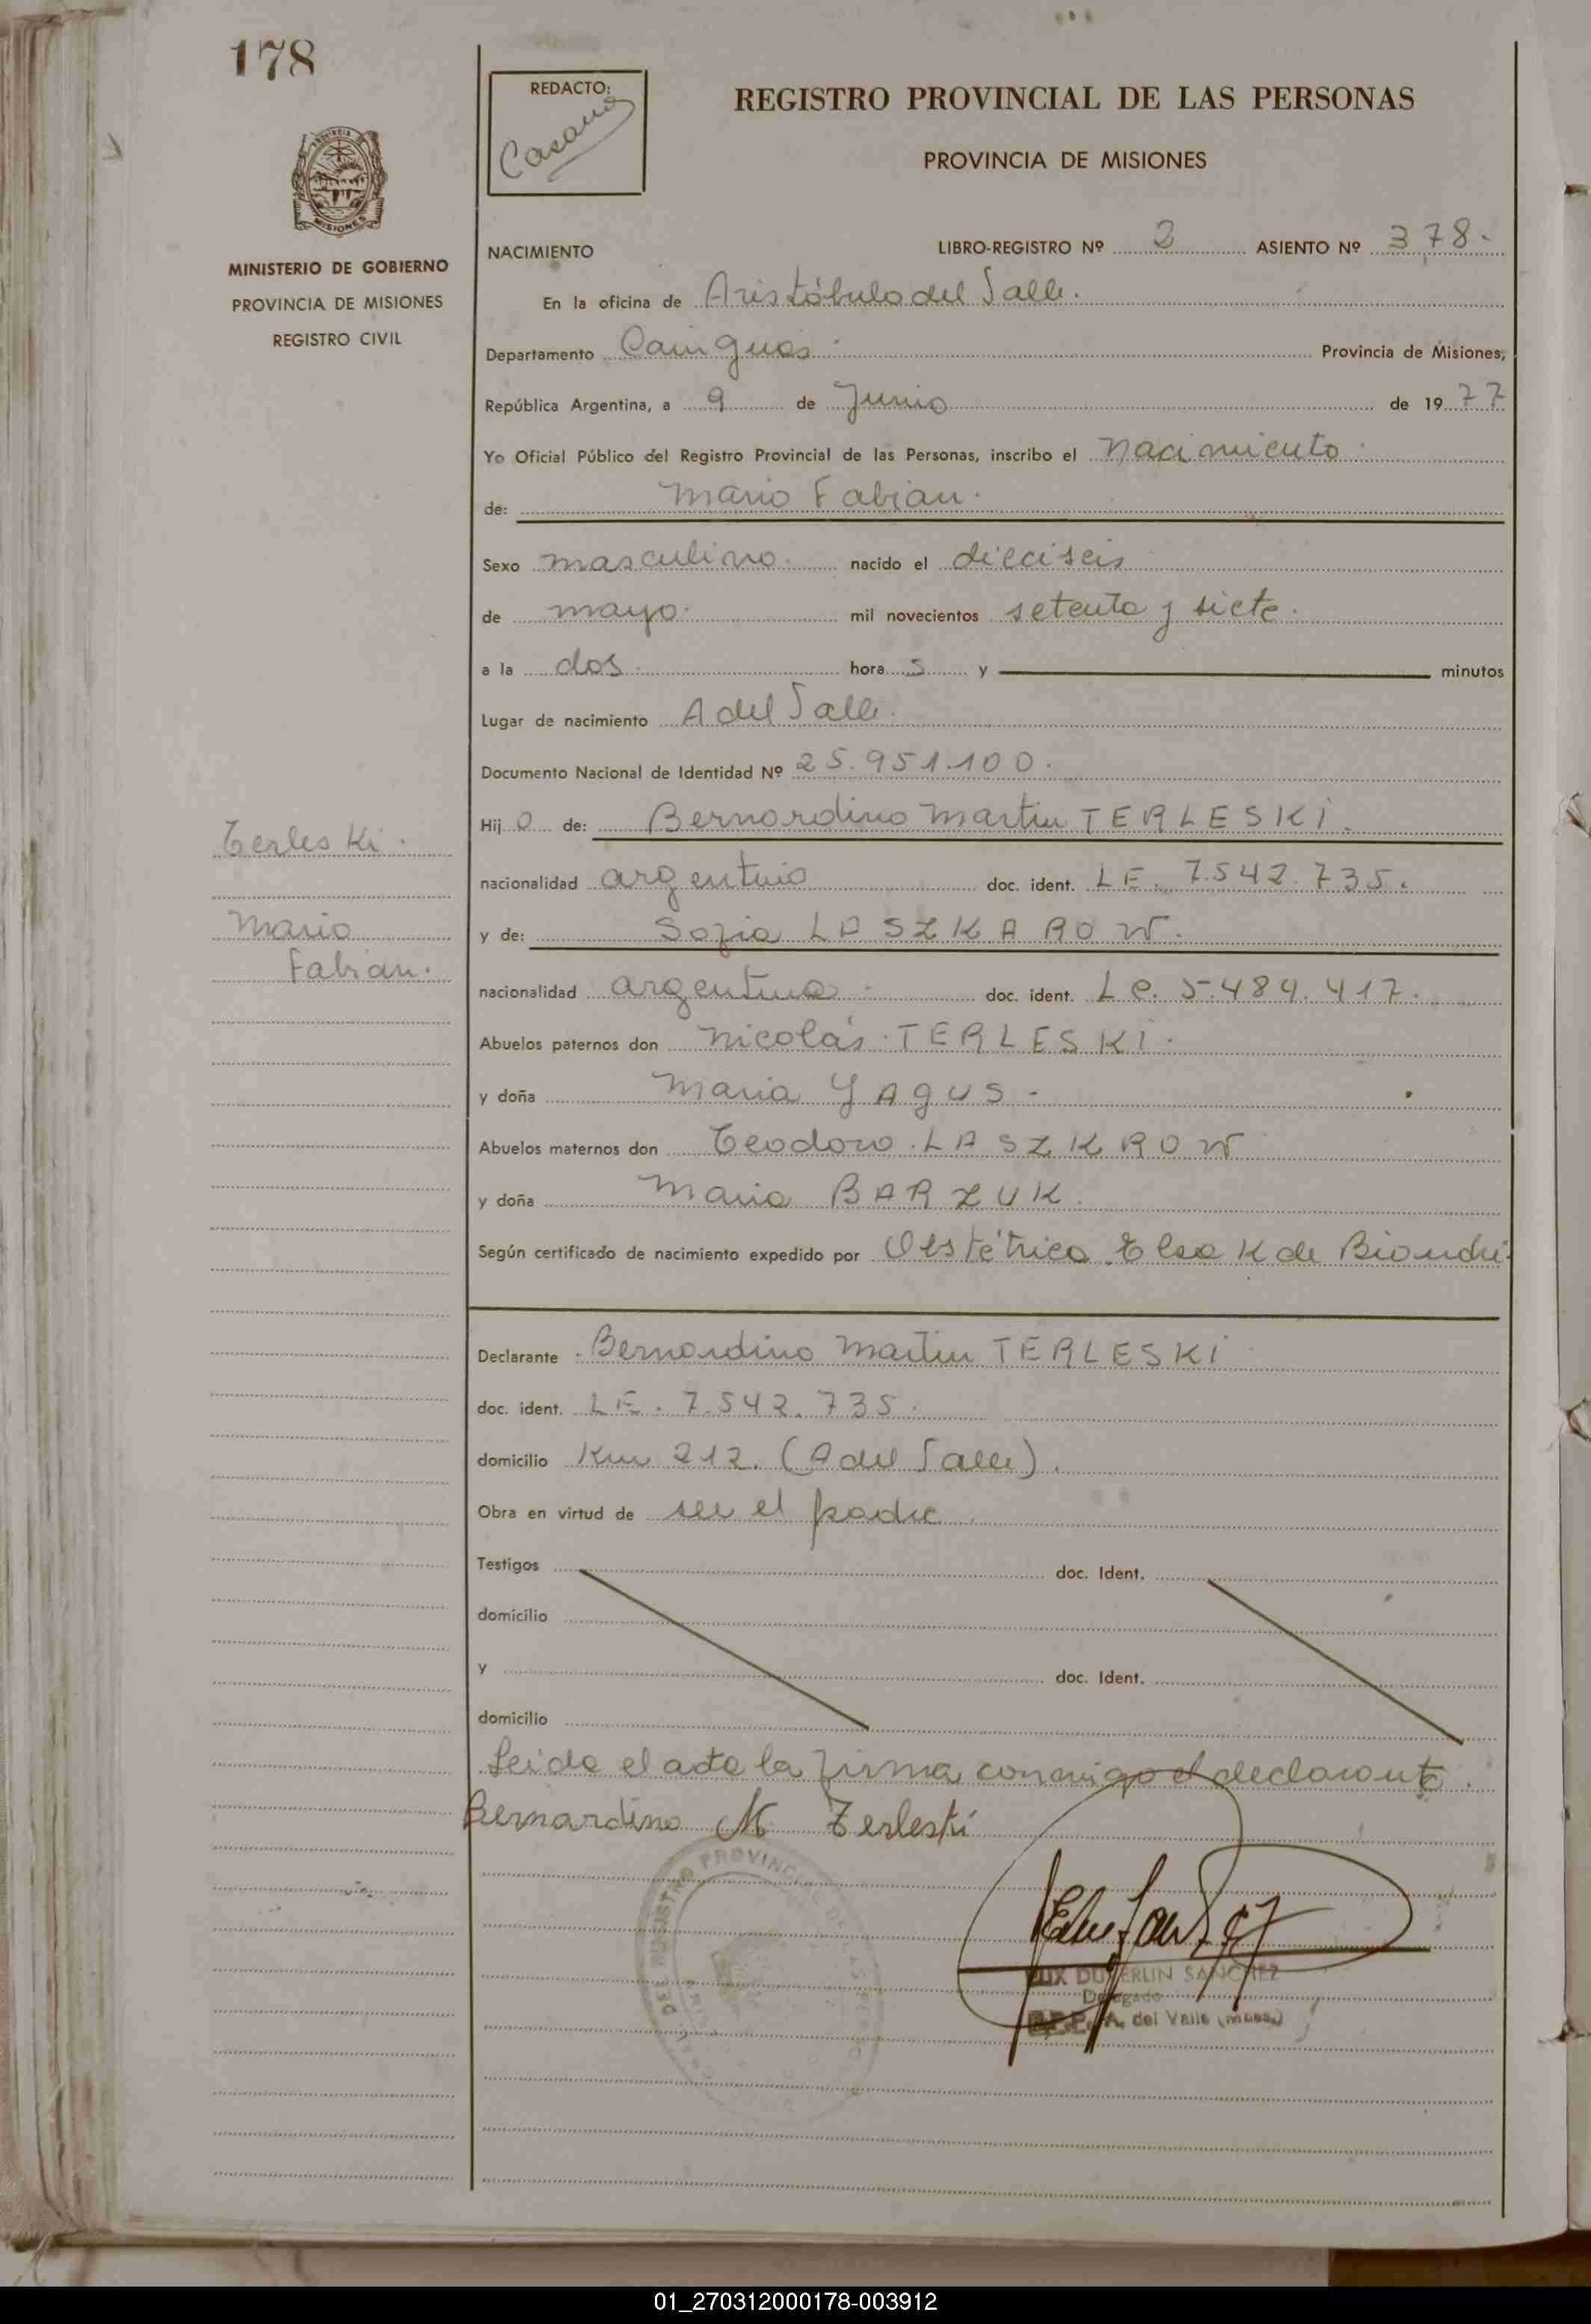 178
REDACTO:
Casano
REGISTRO PROVINCIAL DE LAS PERSONAS
PROVINCIA DE MISIONES
MISIONES
MINISTERIO DE GOBIERNO
PROVINCIA DE MISIONES
REGISTRO CIVIL
NACIMIENTO LIBRO-REGISTRO Nº 2 ASIENTO Nº 378.
En la oficina de Aristóbulo del Valle.
Departamento Cainguás. Provincia de Misiones,
República Argentina, a 9 de Junio de 1977
Yo Oficial Público del Registro Provincial de las Personas, inscribo el nacimiento.
de: Mario Fabian.
Sexo masculino. nacido el dieciseis
de mayo. mil novecientos setenta y siete.
a la dos hora s y minutos
Lugar de nacimiento A del Valle.
Documento Nacional de Identidad Nº 25.951.100.
Hij o de: Bernardino Martin TERLESKI.
nacionalidad argentino doc. ident. LE. 7.542.735.
y de: Sofia LASZKAROW.
nacionalidad argentina. doc. ident. LC. 5.484.417.
Abuelos paternos don Nicolás TERLESKI.
y doña Maria YAGUS.
Abuelos maternos don Teodoro LASZKROW
y doña Maria BARZUK.
Según certificado de nacimiento expedido por Obstétrica Elsa K de Biondi.
Terleski.
Mario
Fabian.
Declarante Bernardino Martin TERLESKI
doc. ident. LE. 7.542.735.
domicilio Km 212. (A del Valle).
Obra en virtud de ser el padre.
Testigos doc. Ident.
domicilio
y doc. Ident.
domicilio
Leida el acta la firma conmigo el declarante.
Bernardino M Terleski
SANCHEZ
Delegado
A. del Valle (Mnes.)
01_270312000178-003912